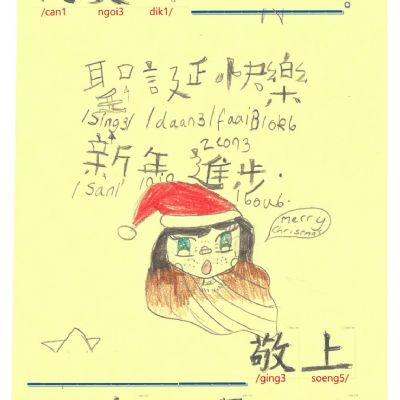 /can1 ngoi3 dik1/
聖誕快樂
/Sing3/ /daan3/faai3lok6
zeon3
新年進步.
/san1 nin bou6.
merry
Chrismas
敬上
/ging3 soeng5/